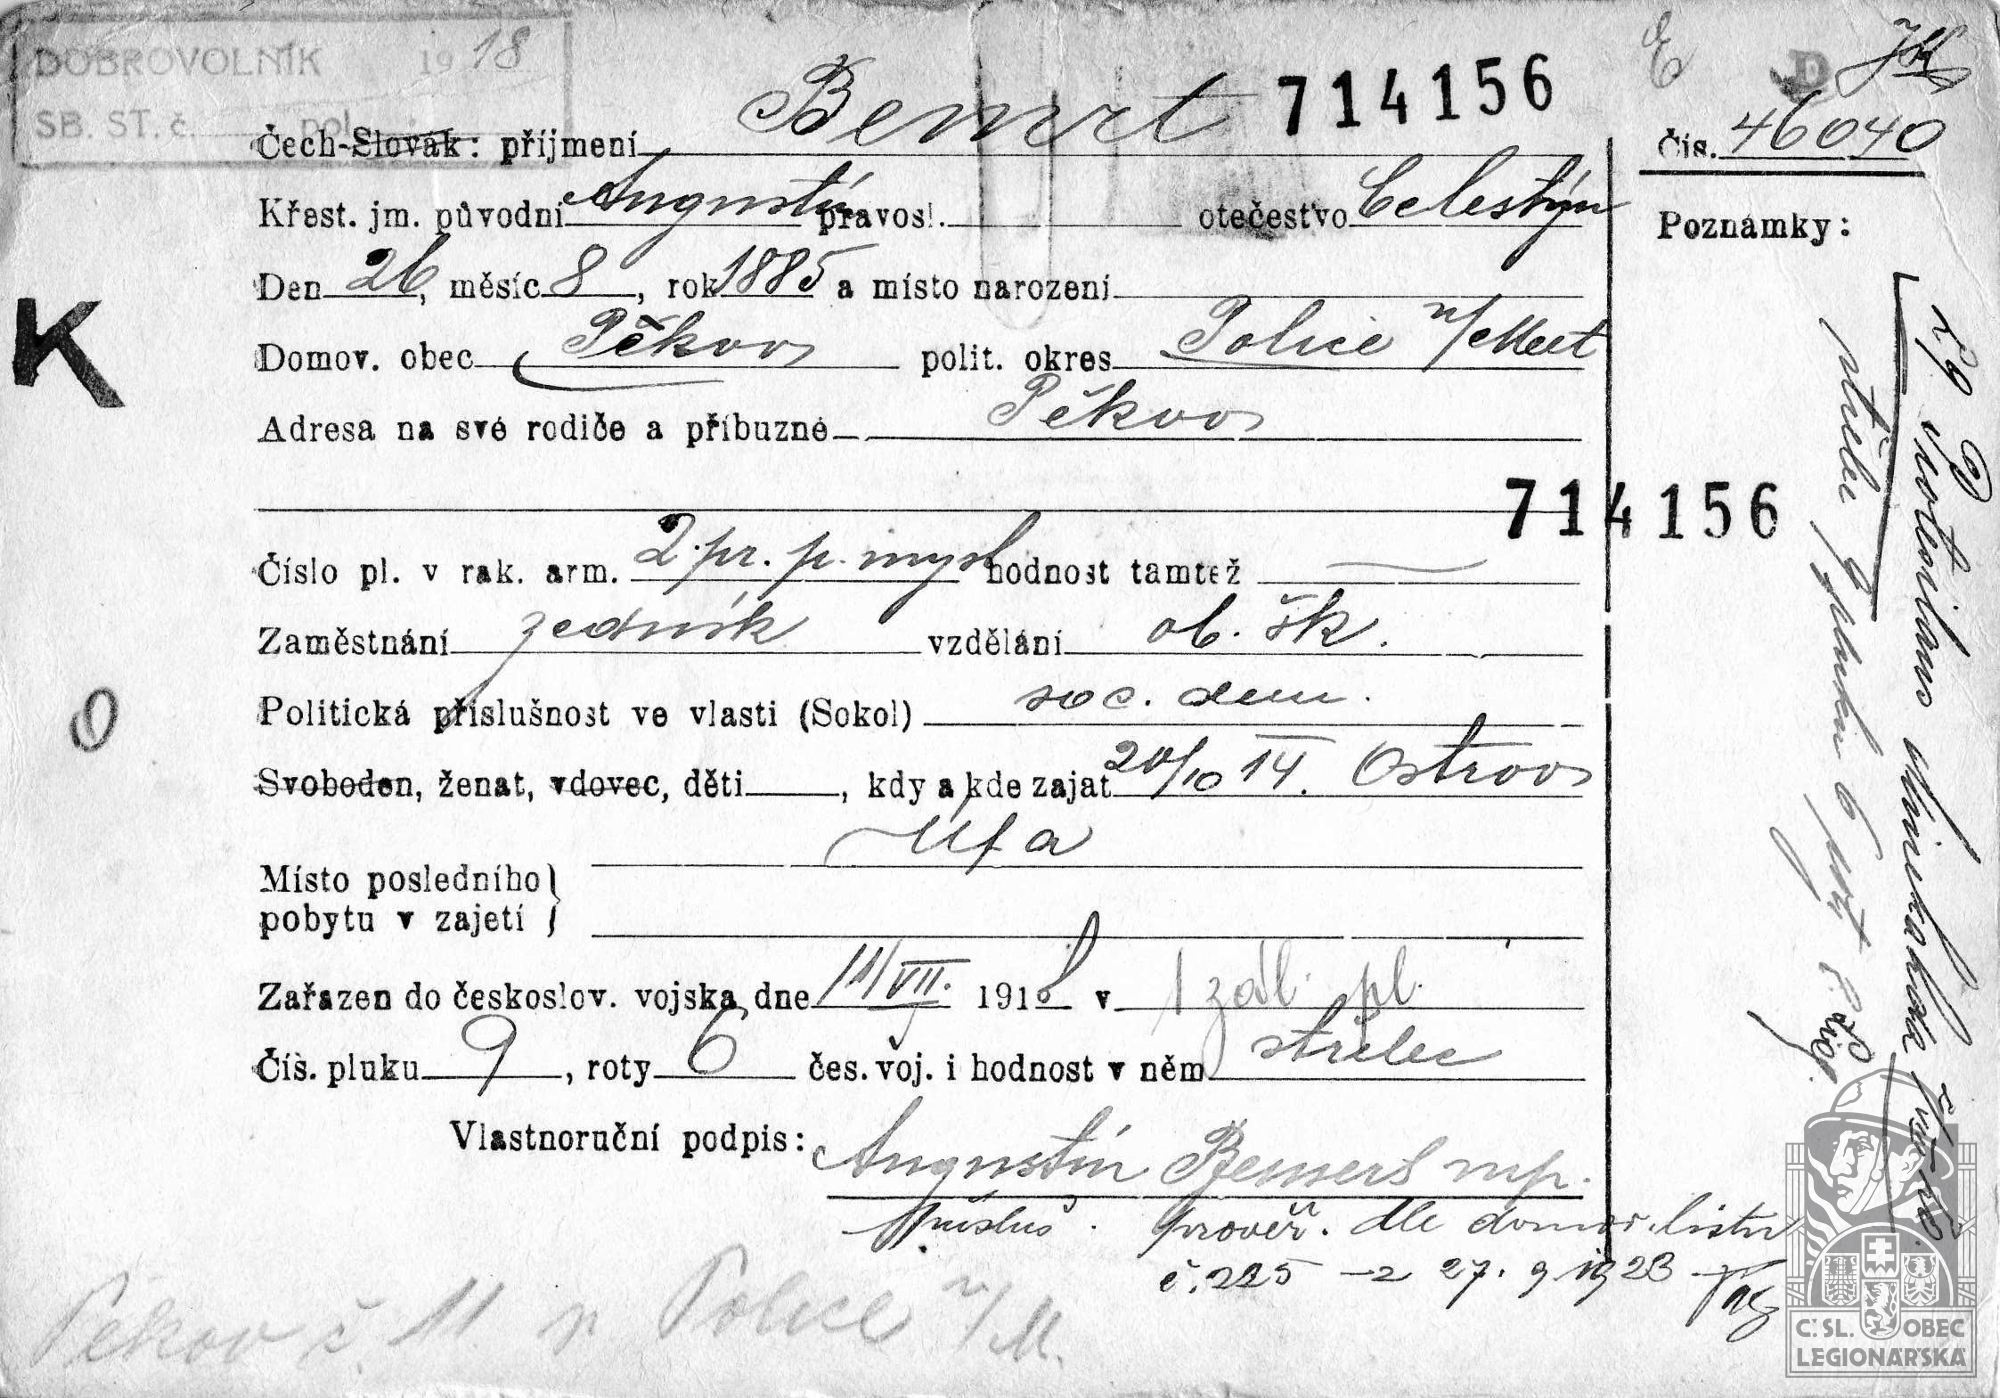 DOBROVOLNÍK 1918
SB. ST. č. pol.
E D
Čís. 46040
714156
Čech-Slovák: příjmení Bemrt
Křest. jm. původní Augustín pravosl. otečestvo Celestýn
Poznámky:
Den 26, měsíc 8, rok 1885 a místo narození
Domov. obec Pěkov polit. okres Police n/Met
K
Adresa na své rodiče a příbuzné Pěkov
714156
Číslo pl. v rak. arm. 2. pr. p. mysl hodnost tamtéž
Zaměstnání zedník vzdělání ob. šk.
Politická příslušnost ve vlasti (Sokol) soc. dem.
O
Svoboden, ženat, vdovec, děti , kdy a kde zajat 20/10 14. Ostrov
Místo posledního pobytu v zajetí } Ufa
Zařazen do českoslov. vojska dne 11/VII. 1918 v 1 zál. pl.
Čís. pluku 9, roty 6 čes. voj. i hodnost v něm střelec
Vlastnoruční podpis: Augustín Bemert mp.
Přísluš. prověř. dle domov. listu
č. 225 z 27. 9. 1923
Pěkov č. 11 p. Police n/M.
střelec 9 pluku 6 roty
Č: SL. OBEC
LEGIONÁŘSKÁ